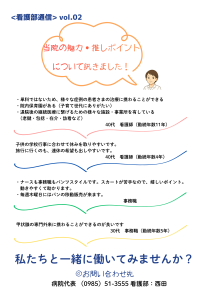 <看護部通信> vol.02
当院の魅力・推しポイント
について聞きました！
・単科ではないため、様々な症例の患者さまの治療に携わることができる
・院内保育園がある（子育て世代にありがたい）
・退院後の継続医療に繋げるための様々な施設・事業所を有している
（老健・包括・在介・診療など）
40代　看護師（勤続年数11年）
子供の学校行事に合わせて休みを取りやすいです。
旅行に行くのも、連休の希望も出しやすいです。
40代　看護師（勤続年数4年）
・ナースも事務職もパンツスタイルです。スカートが苦手なので、嬉しいポイント。
動きやすくて助かります。
・毎週水曜日にはパンの移動販売が来ます。
事務職
平伏際の専門行床に携わることができるのが良いです
30代　事務職（勤続年数5年）
私たちと一緒に働いてみませんか？
◎お問い合わせ先
病院代表 （0985）51-3555 看護部：西田